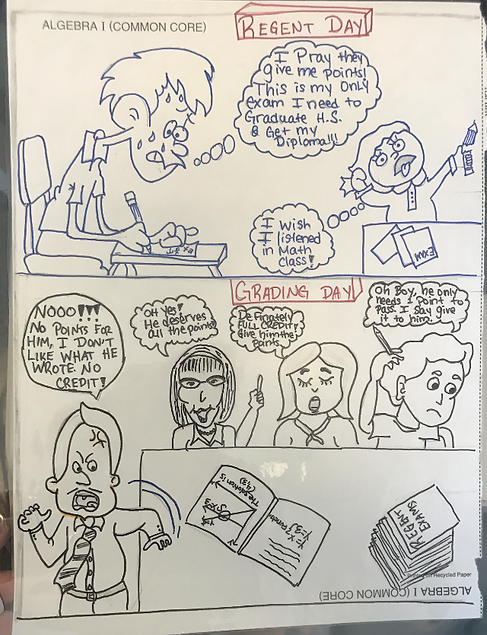 ALGEBRA I (COMMON CORE)
REGENT DAY
I Pray they
give me points!
This is my only
exam I need to
Graduate H.S.
& Get my
Diploma!!!
I wish
I listened
in Math
class!
Exam
GRADING DAY
NOOO!!!
NO POINTS FOR
HIM, I DON'T
LIKE WHAT HE
WROTE. NO
CREDIT!
Oh Yes!
He deserves
all the points!
Definately
FULL CREDIT!
Give him the
points.
Oh Boy, he only
needs 1 point to
pass. I say give
it to him!
The solution is
REGENT
EXAMS
Printed on Recycled Paper
ALGEBRA I (COMMON CORE)